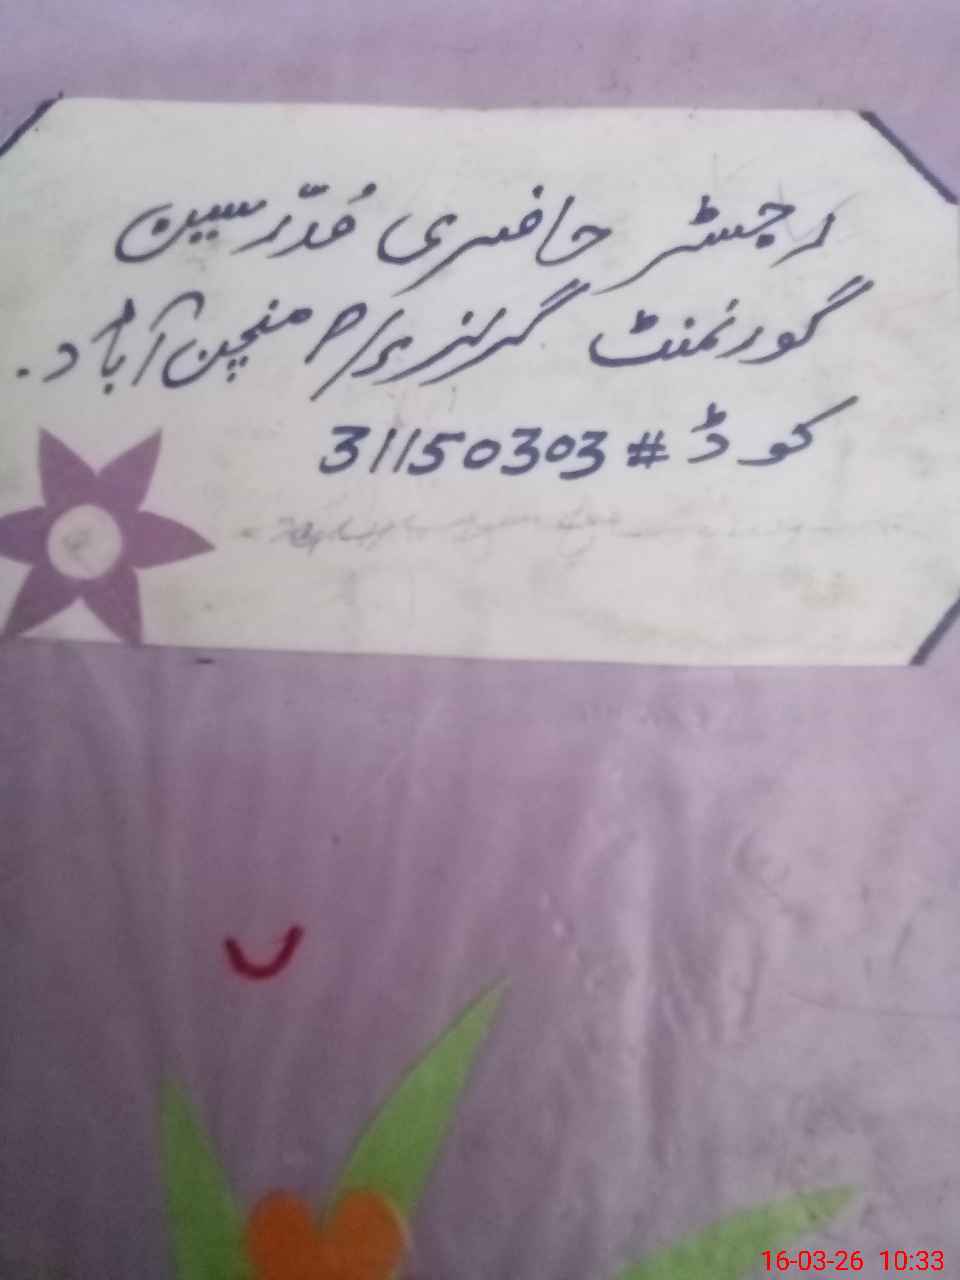 رجسٹر حاضری مُدرّسین
گورنمنٹ گرلز ہ/ر منچن آباد۔
کوڈ # 31150303
16-03-26 10:33